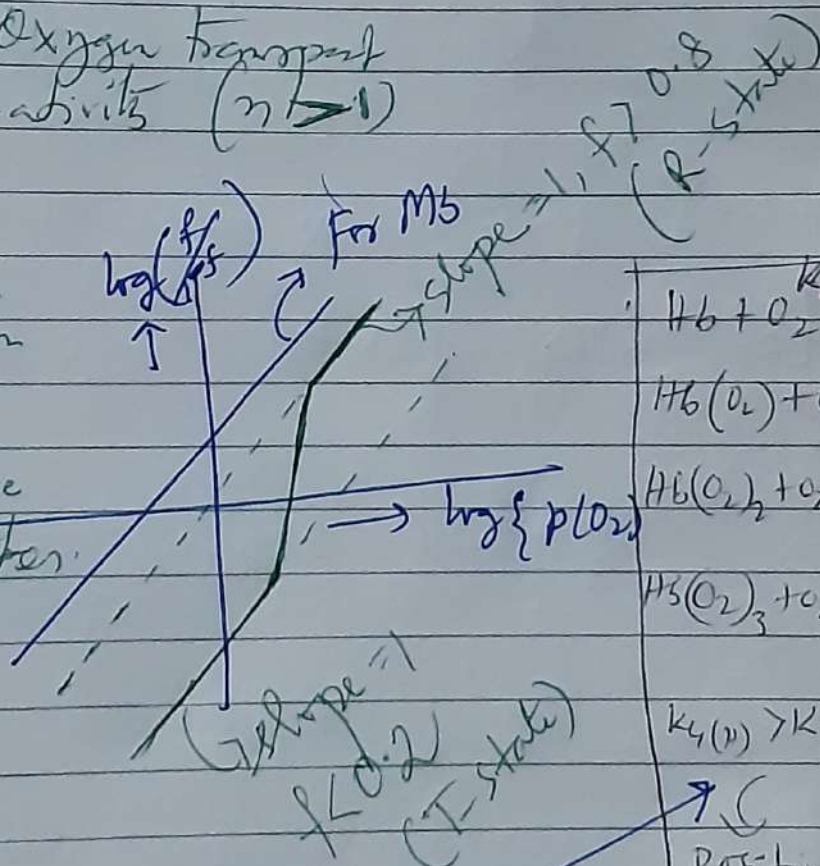 Oxygen transport
(n > 1)
log(f/1-f)
For Mb
slope = 1, f > 0.8
(R-state)
→ log{p(O₂)
slope = 1
f < 0.2
(T-state)
K
Hb + O₂
Hb(O₂) +
Hb(O₂)₂ + O₂
Hb(O₂)₃ + O₂
K₄(n) > K